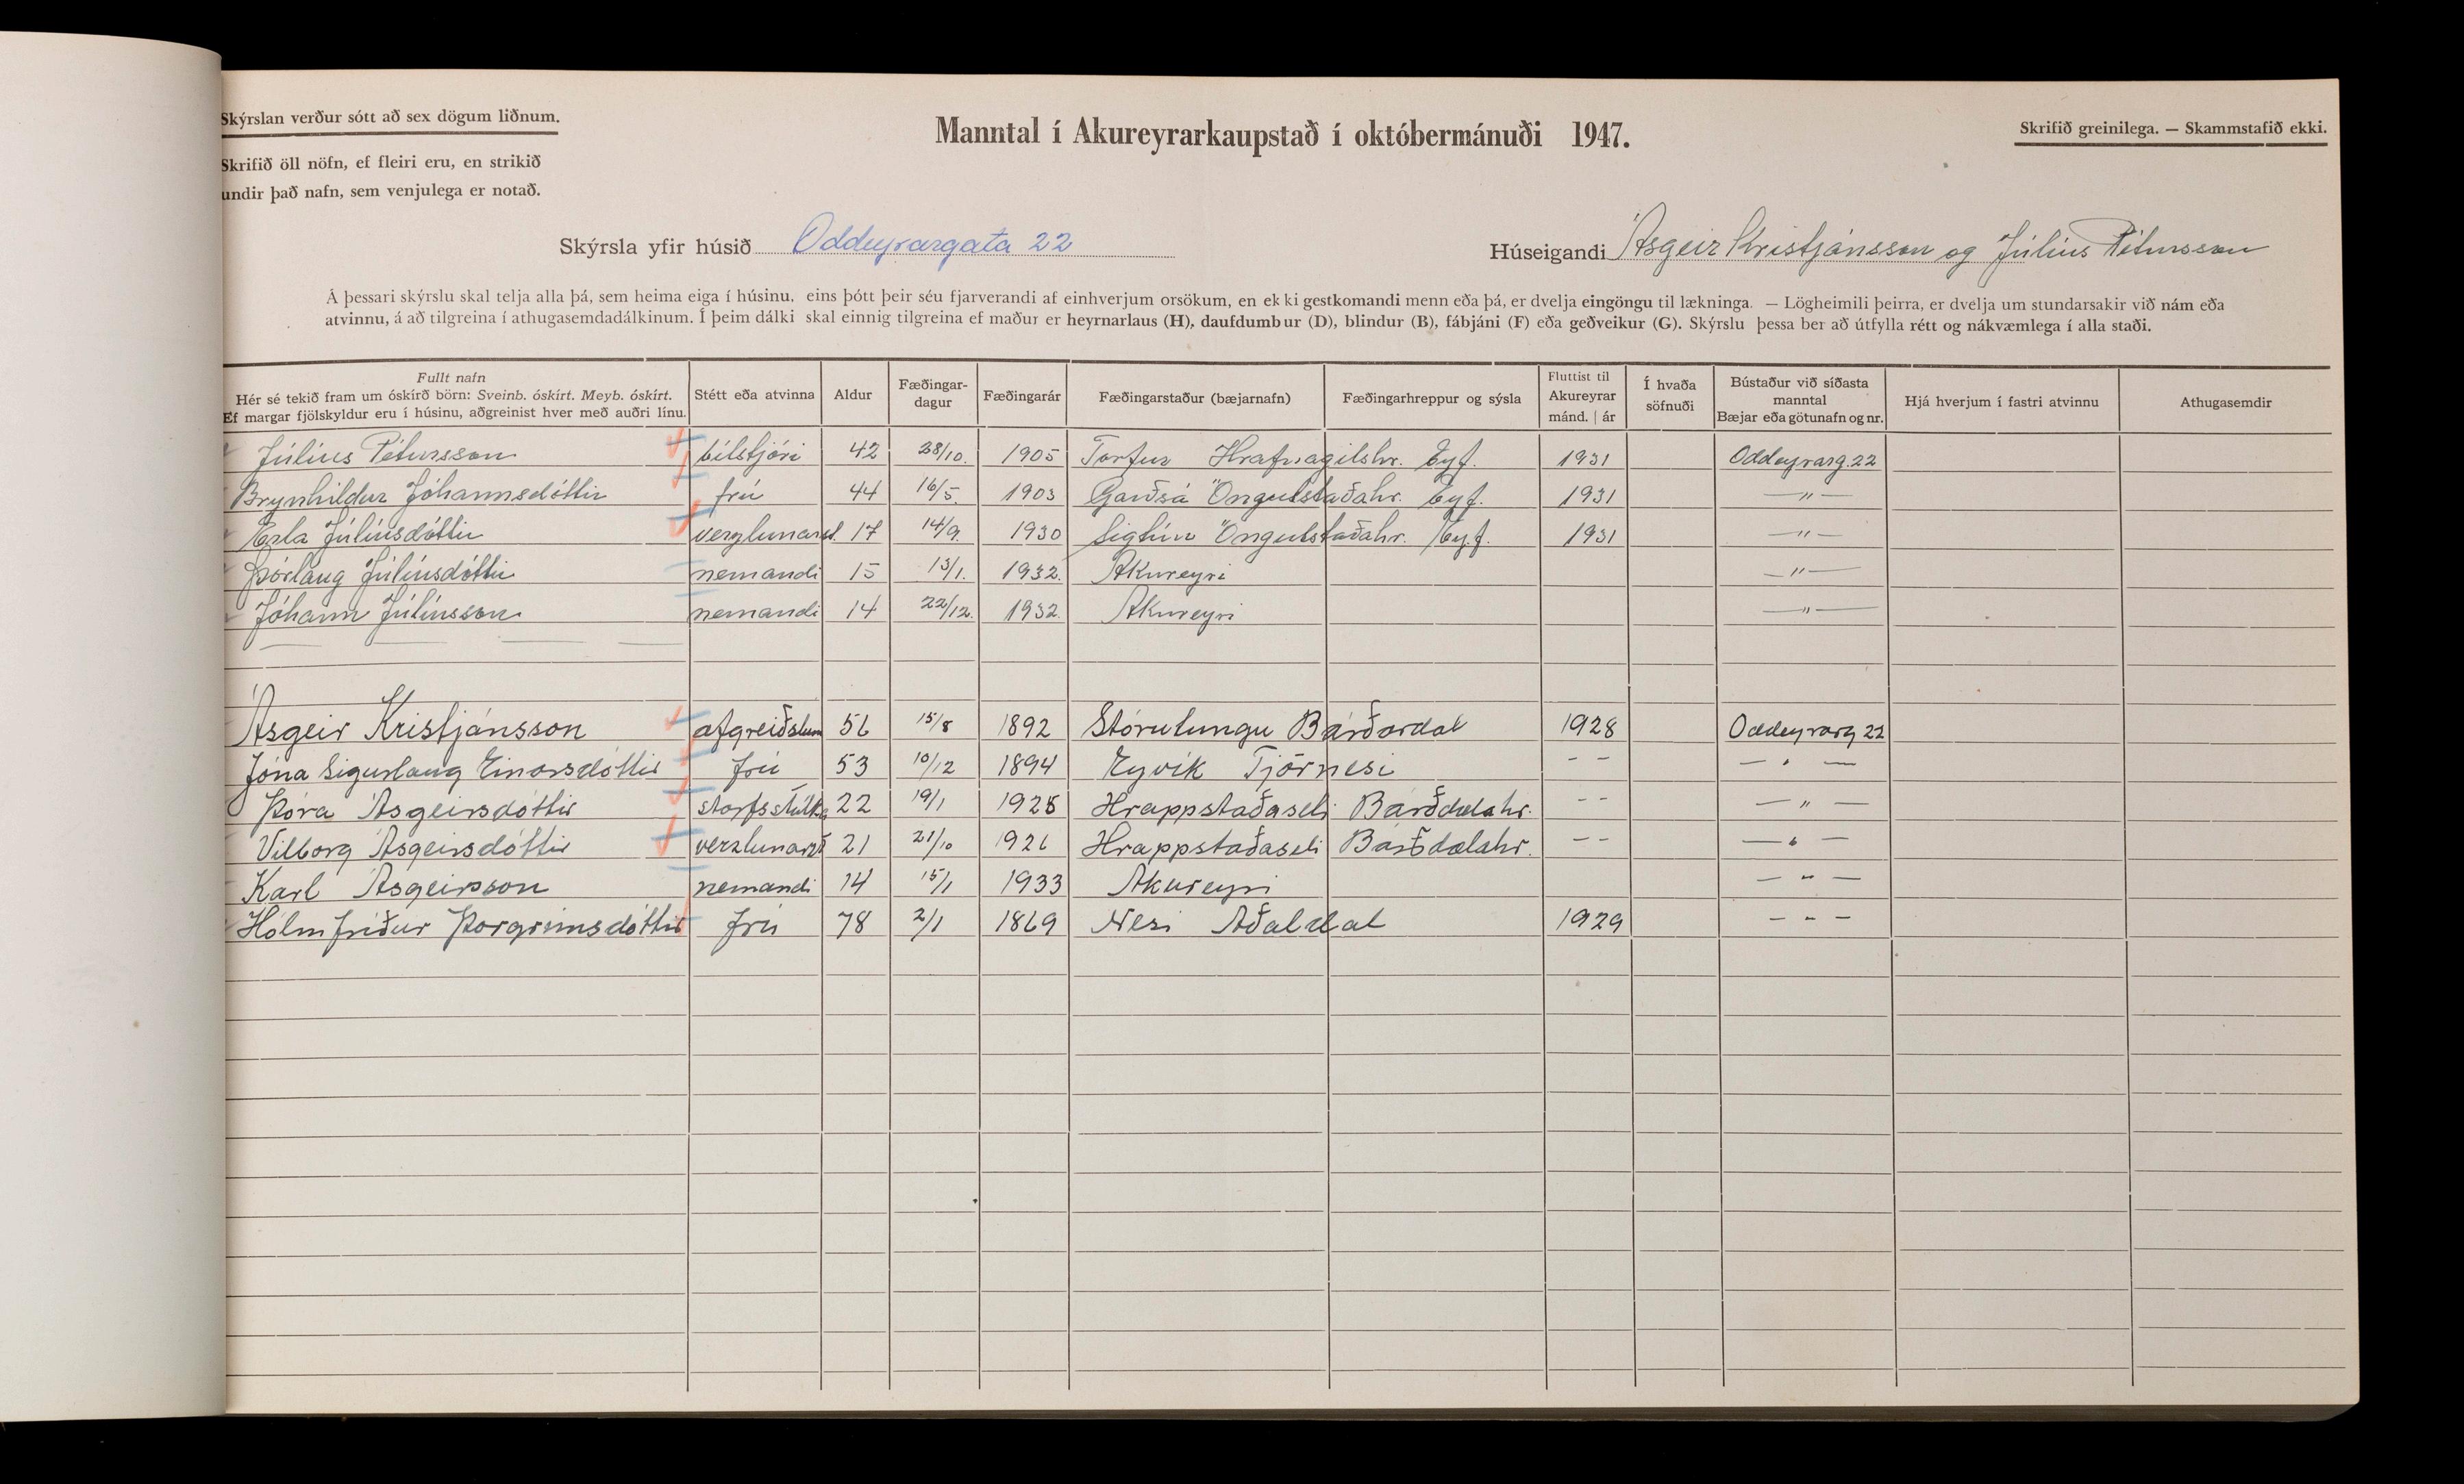 Skýrslan verður sótt að sex dögum liðnum.
Manntal í Akureyrarkaupstað í októbermánuði 1947.
Skrifið greinilega. — Skammstafið ekki.
Skrifið öll nöfn, ef fleiri eru, en strikið
undir það nafn, sem venjulega er notað.
Skýrsla yfir húsið Oddeyrargata 22
Húseigandi Ásgeir Kristjánsson og Júlíus Pétursson
Á þessari skýrslu skal telja alla þá, sem heima eiga í húsinu, eins þótt þeir séu fjarverandi af einhverjum orsökum, en ekki gestkomandi menn eða þá, er dvelja eingöngu til lækninga. — Lögheimili þeirra, er dvelja um stundarsakir við nám eða
atvinnu, á að tilgreina í athugasemdadálkinum. Í þeim dálki skal einnig tilgreina ef maður er heyrnarlaus (H), daufdumbur (D), blindur (B), fábjáni (F) eða geðveikur (G). Skýrslu þessa ber að útfylla rétt og nákvæmlega í alla staði.
Fullt nafn
Hér sé tekið fram um óskírð börn: Sveinb. óskírt. Meyb. óskírt.
Ef margar fjölskyldur eru í húsinu, aðgreinist hver með auðri línu.
Stétt eða atvinna
Aldur
Fæðingar-
dagur
Fæðingarár
Fæðingarstaður (bæjarnafn)
Fæðingarhreppur og sýsla
Fluttist til
Akureyrar
mánd. | ár
Í hvaða
söfnuði
Bústaður við síðasta
manntal
Bæjar eða götunafn og nr.
Hjá hverjum í fastri atvinnu
Athugasemdir
Júlíus Pétursson bílstjóri 42 28/10. 1905 Torfur Hrafnagilshr. Eyf. 1931 Oddeyrarg. 22
Brynhildur Jóhannsdóttir frú 44 16/5. 1903 Garðsá Öngulstaðahr. Eyf. 1931 — " —
Erla Júlíusdóttir verzlunarst. 17 14/9. 1930 Sigtún Öngulstaðahr. Eyf. 1931 — " —
Þórlaug Júlíusdóttir nemandi 15 13/1. 1932. Akureyri — " —
Jóhann Júlíusson nemandi 14 22/12. 1932. Akureyri — " —
Ásgeir Kristjánsson afgreiðslum 56 15/8 1892 Stórutungu Bárðardal 1928 Oddeyrarg 22
Jóna Sigurlaug Einarsdóttir frú 53 10/12 1894 Eyvík Tjörnesi - - — " —
Þóra Ásgeirsdóttir starfsstúlka 22 19/1 1925 Hrappstaðaseli Bárðdælahr. - - — " —
Vilborg Ásgeirsdóttir verzlunarst 21 21/10 1926 Hrappstaðaseli Bárðdælahr. - - — " —
Karl Ásgeirsson nemandi 14 15/1 1933 Akureyri — " —
Hólmfríður Þorgrímsdóttir frú 78 2/1 1869 Nesi Aðaldal 1929 — " —